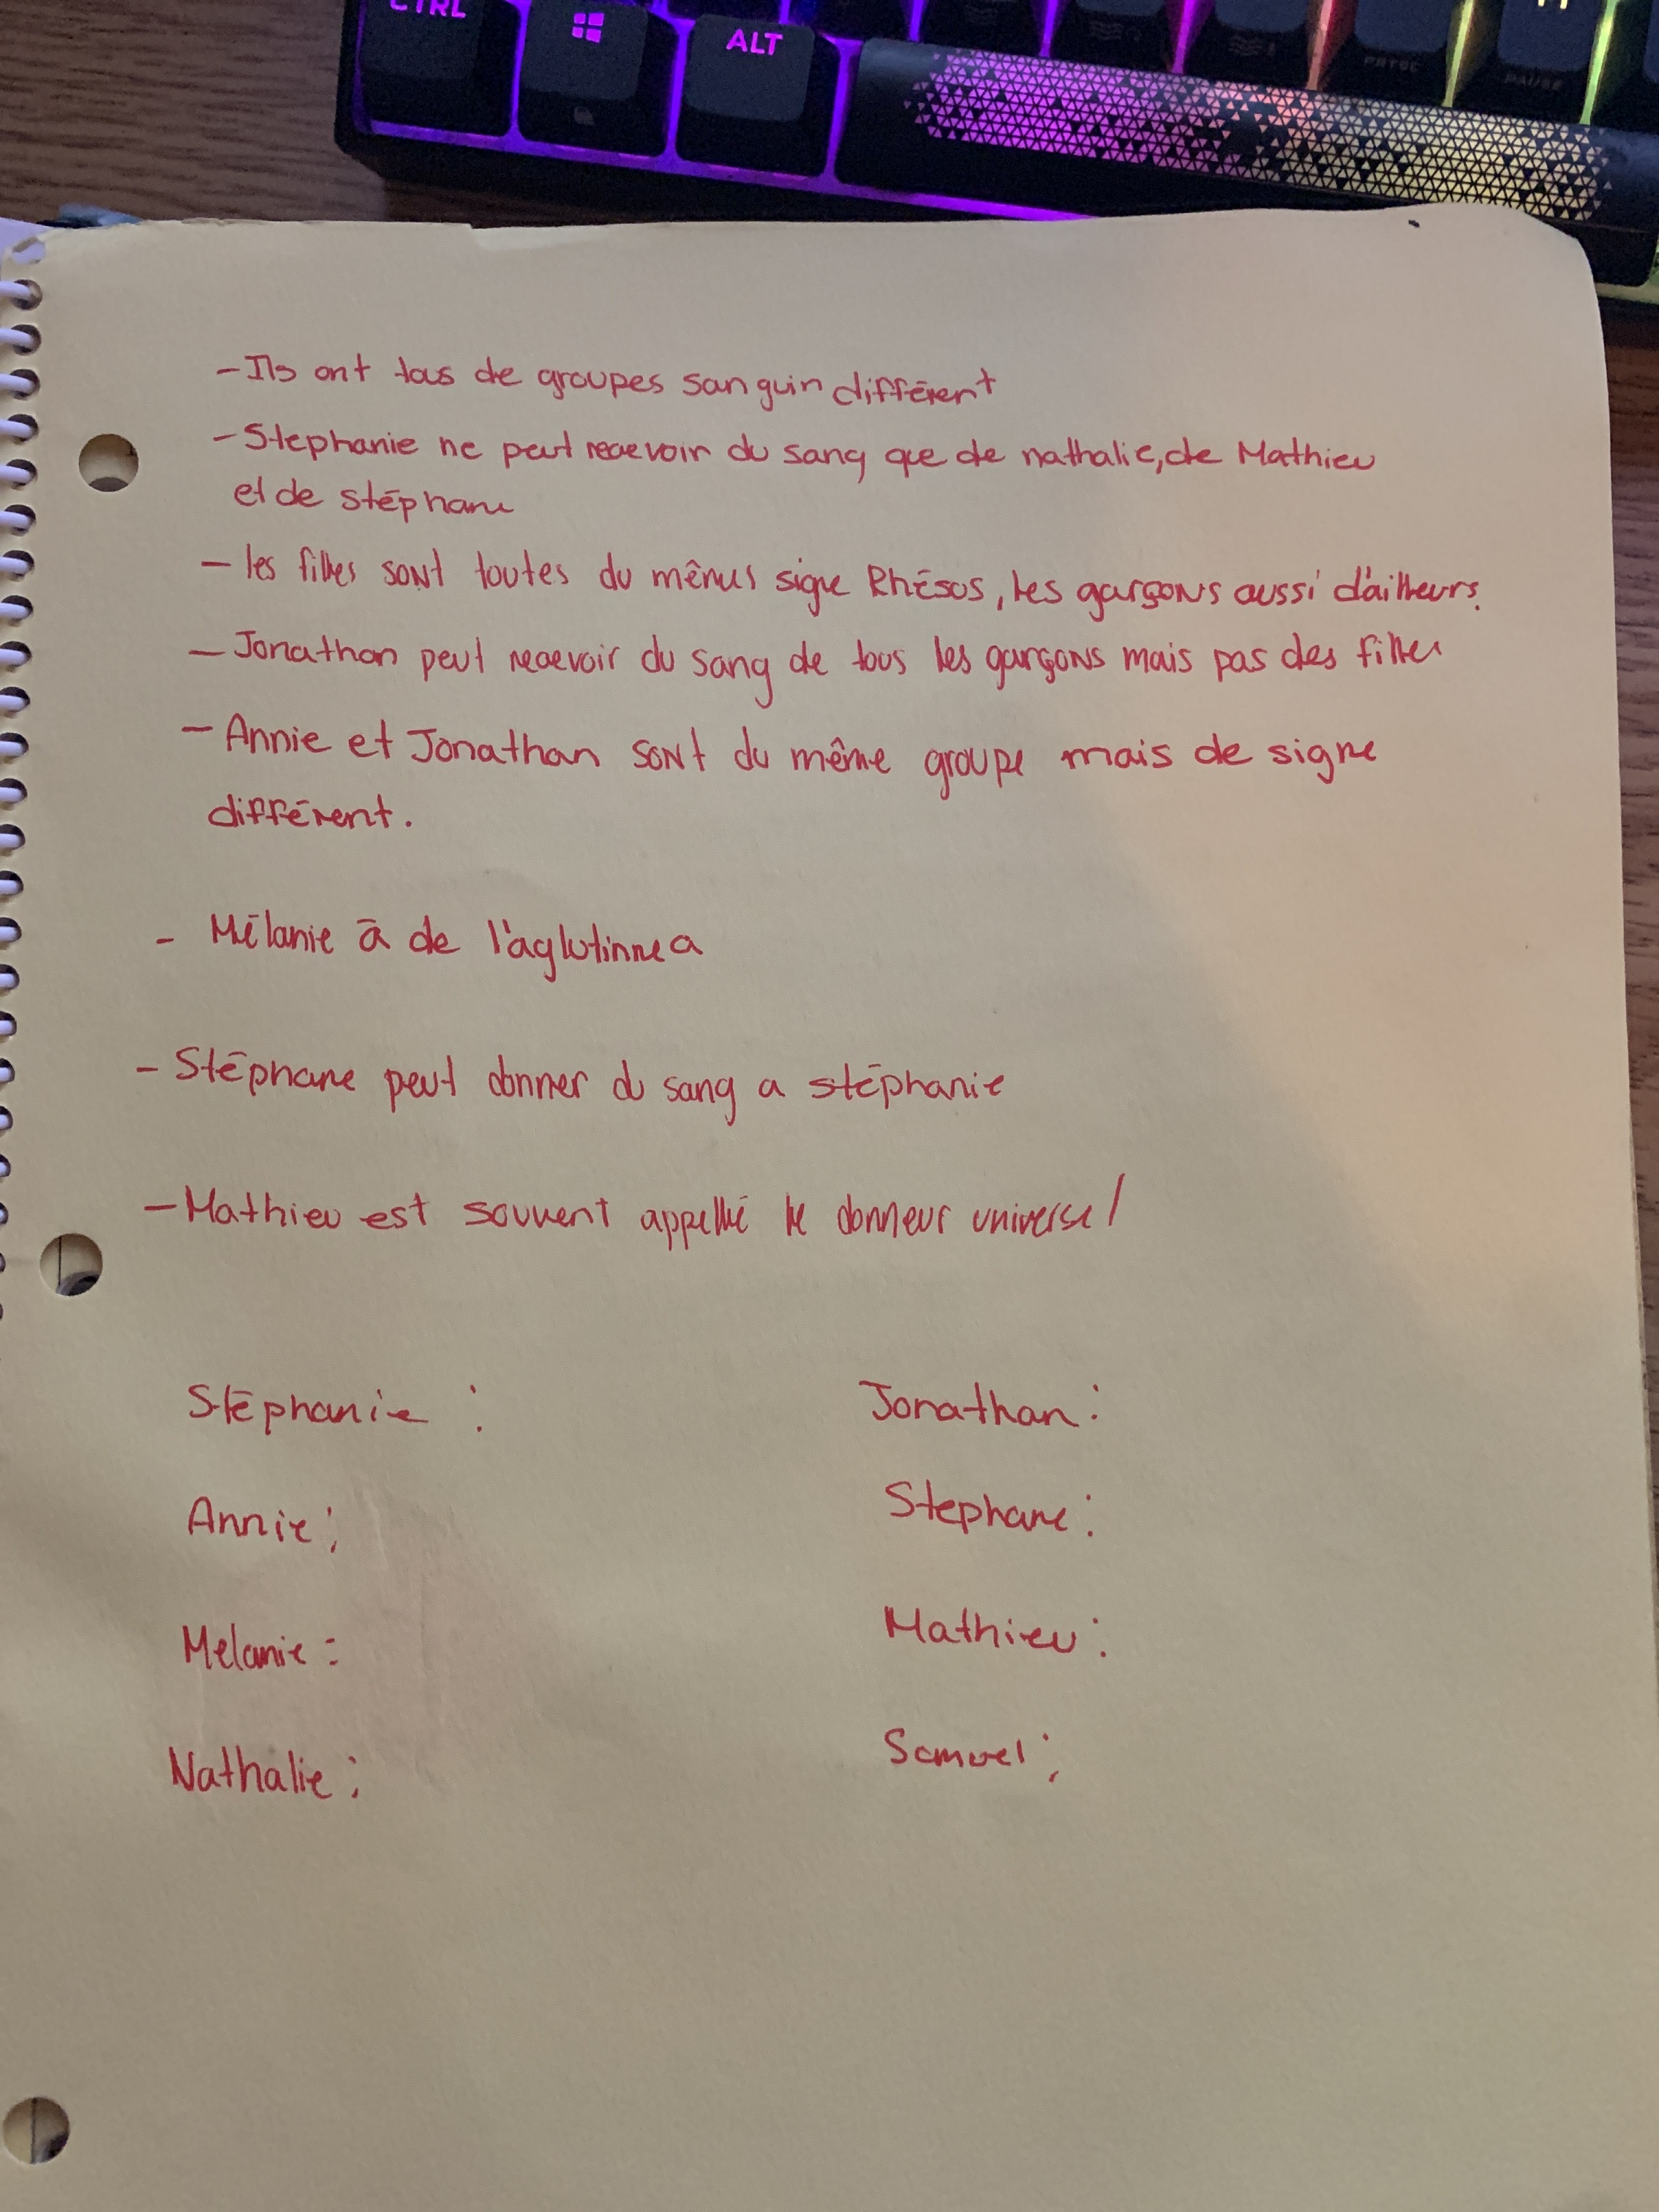 CTRL
ALT
PRTSC
PAUSE
- Ils ont tous de groupes sanguin différent
- Stephanie ne peut recevoir du sang que de nathalie, de Mathieu
et de stéphane
- les filles sont toutes du mêmes signe Rhésus, les garçons aussi d'ailleurs.
- Jonathan peut recevoir du sang de tous les garçons mais pas des filles
- Annie et Jonathan sont du même groupe mais de signe
différent.
- Mélanie à de l'aglutinne a
- Stéphane peut donner du sang a stéphanie
- Mathieu est souvent appellé le donneur universel
Stéphanie :
Jonathan :
Annie ;
Stephane :
Melanie :
Mathieu :
Nathalie ;
Samuel ;